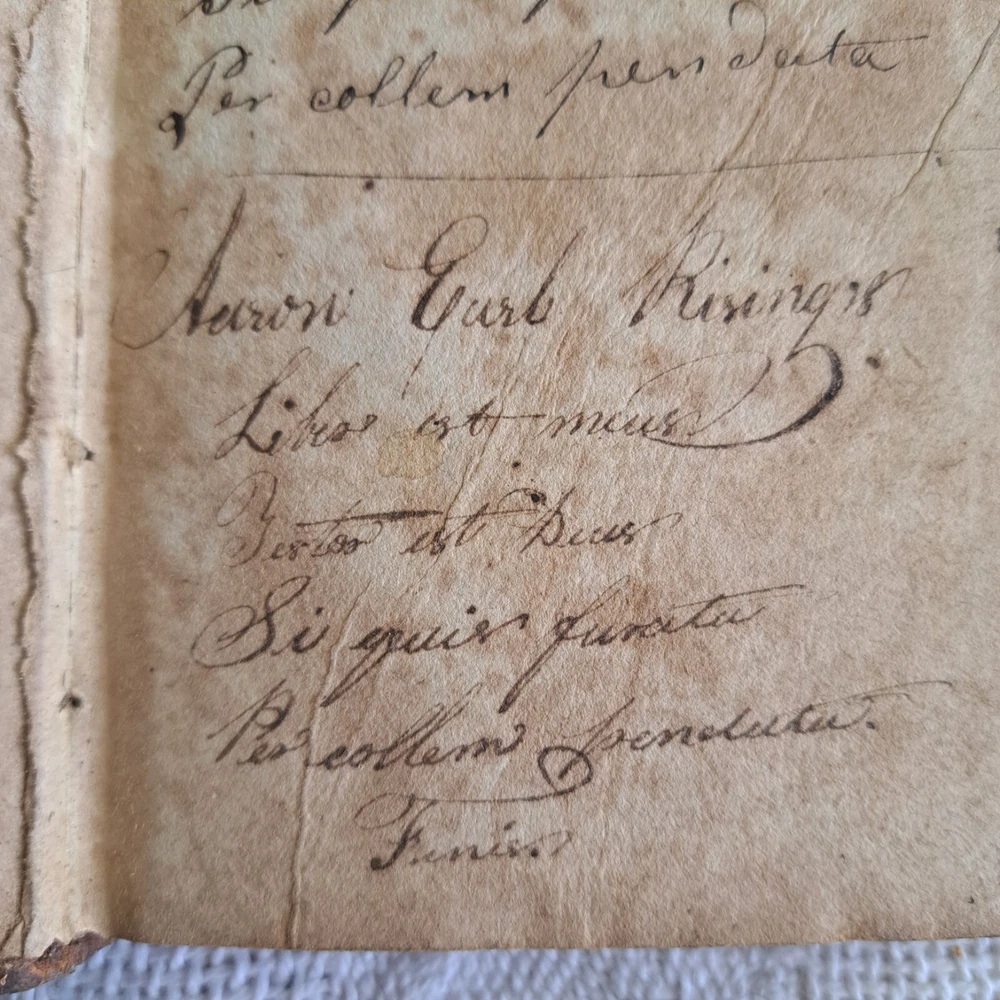 Per collem pendata
Aaron Earl Rising's
Liber est meus
Testos est Deus
Si quis furatu
Per collem pendatu.
Funis.